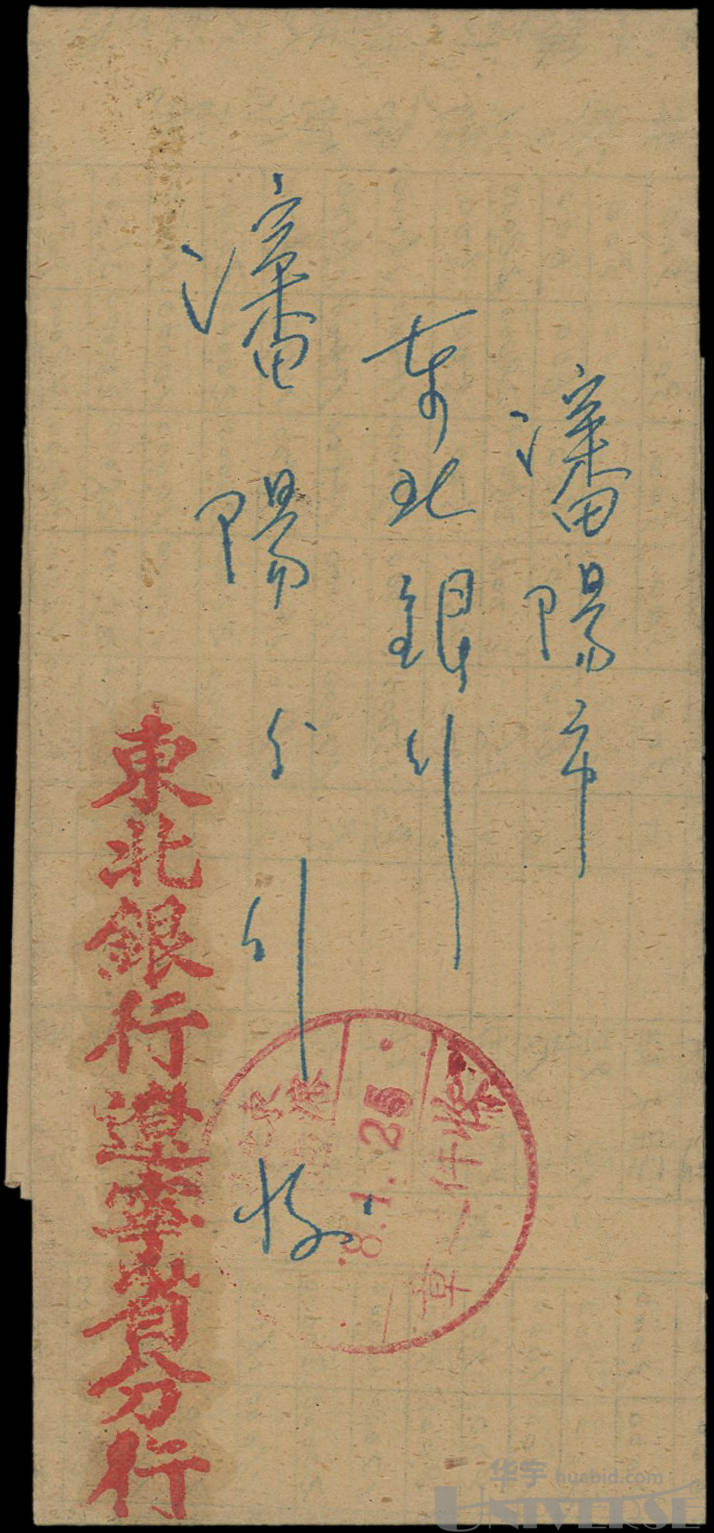 瀋陽市
東北銀行
瀋陽分行
東北銀行遼寧省分行
8.1.25
收件
章
华宇 huabid.com
UNIVERSE